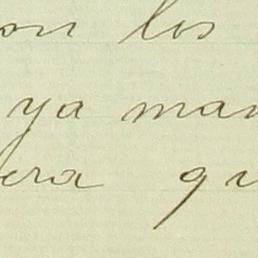 on los
ya man
era qu